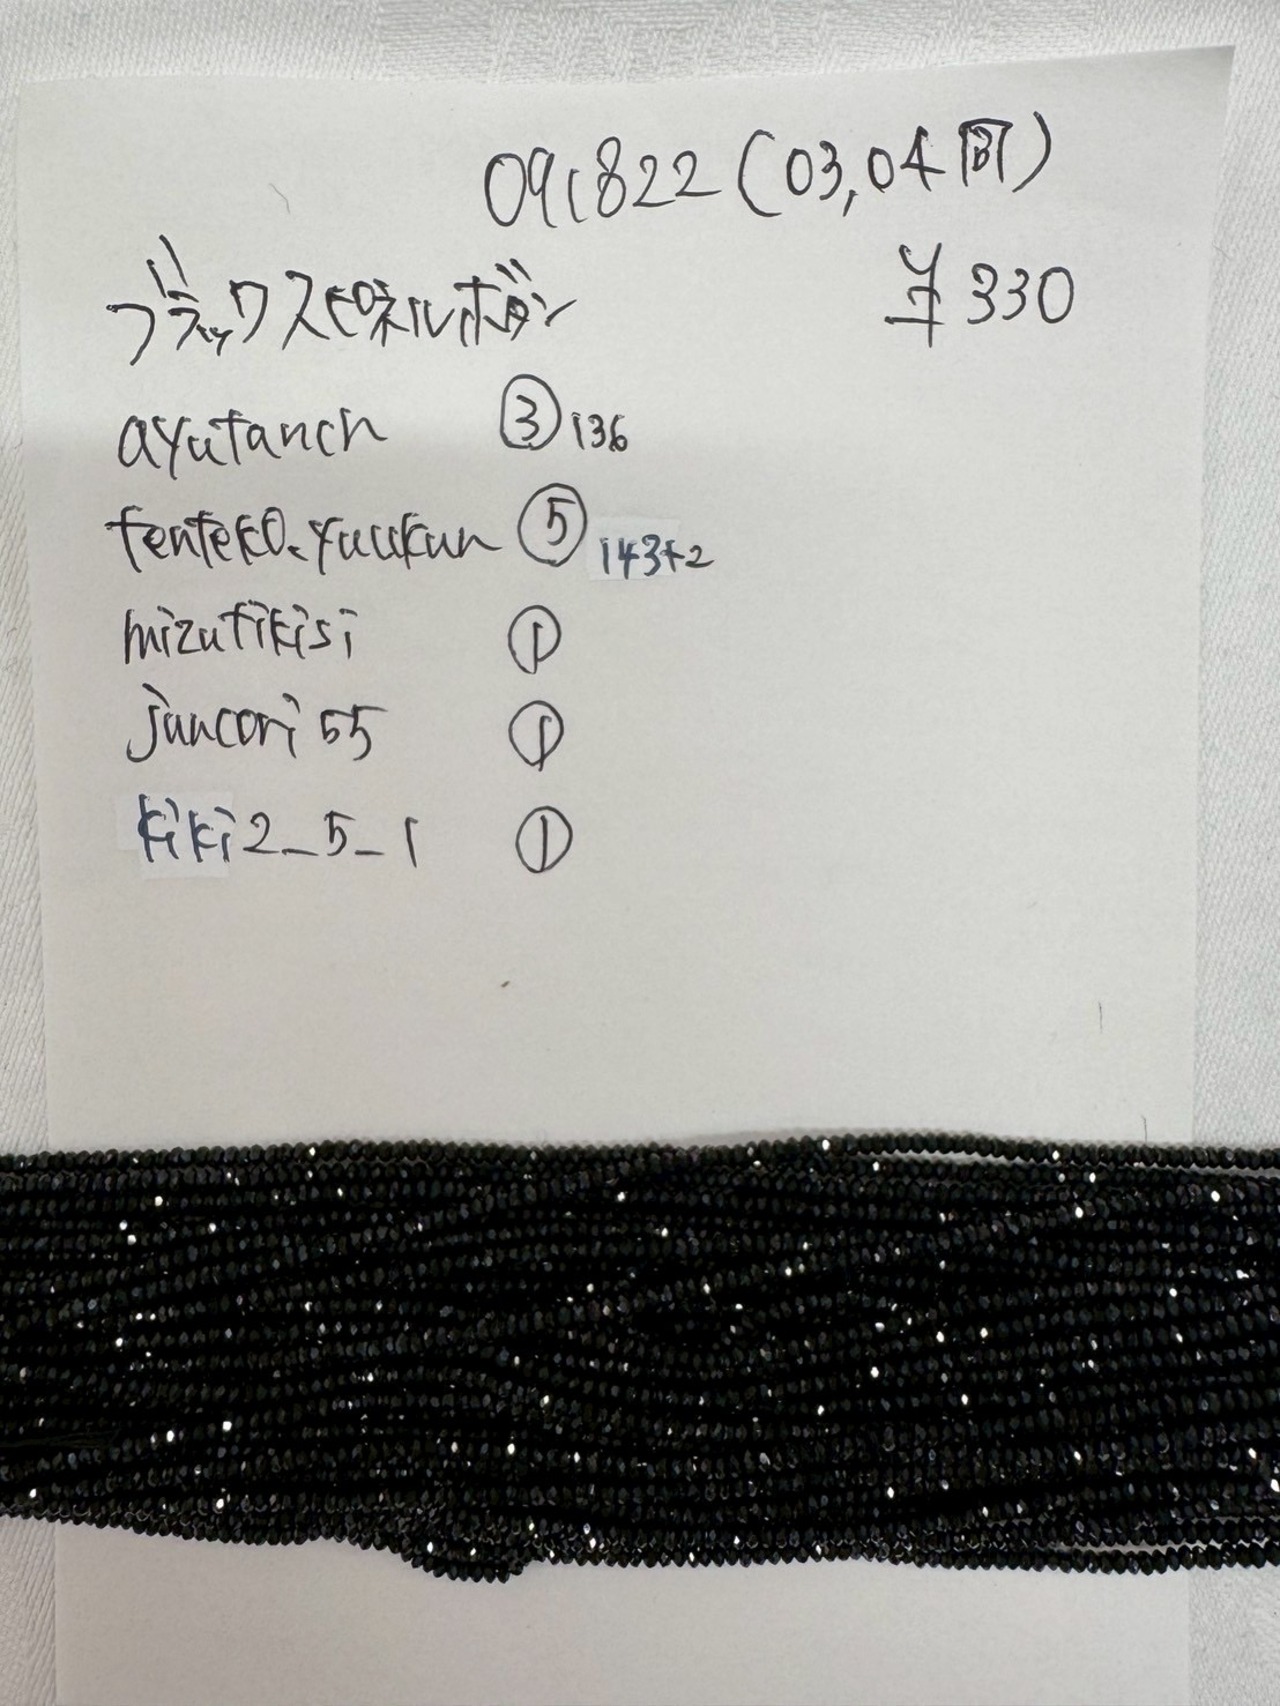 091822(03,04同)
ブラックスピネルボタン ¥330
ayutanch ③136
tenteko.yuukun ⑤143+2
mizutikisi ①
juncori55 ①
kiki2_5_1 ①